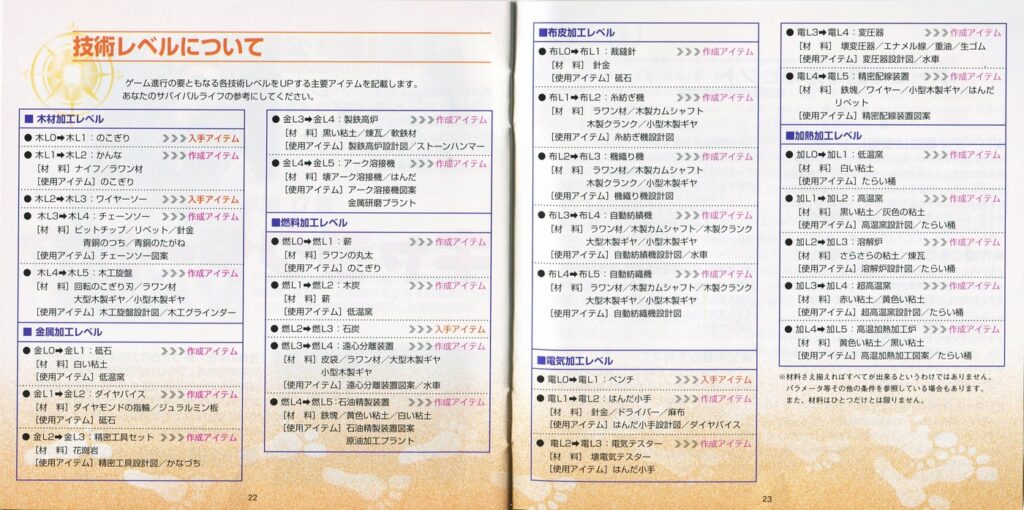 技術レベルについて
ゲーム進行の要ともなる各技術レベルをUPする主要アイテムを記載します。
あなたのサバイバルライフの参考にしてください。
■ 木材加工レベル
● 木L0➡木L1：のこぎり >>>入手アイテム
● 木L1➡木L2：かんな >>>作成アイテム
［材　料］ナイフ／ラワン材
［使用アイテム］のこぎり
● 木L2➡木L3：ワイヤーソー >>>入手アイテム
● 木L3➡木L4：チェーンソー >>>作成アイテム
［材　料］ビットチップ／リベット／針金
青銅のつち／青銅のたがね
［使用アイテム］チェーンソー図案
● 木L4➡木L5：木工旋盤 >>>作成アイテム
［材　料］回転のこぎり刃／ラワン材
大型木製ギヤ／小型木製ギヤ
［使用アイテム］木工旋盤設計図／木工グラインダー
■ 金属加工レベル
● 金L0➡金L1：砥石 >>>作成アイテム
［材　料］白い粘土
［使用アイテム］低温窯
● 金L1➡金L2：ダイヤバイス >>>作成アイテム
［材　料］ダイヤモンドの指輪／ジュラルミン板
［使用アイテム］砥石
● 金L2➡金L3：精密工具セット >>>作成アイテム
［材　料］花崗岩
［使用アイテム］精密工具設計図／かなづち
● 金L3➡金L4：製鉄高炉 >>>作成アイテム
［材　料］黒い粘土／煉瓦／軟鉄材
［使用アイテム］製鉄高炉設計図／ストーンハンマー
● 金L4➡金L5：アーク溶接機 >>>作成アイテム
［材　料］壊アーク溶接機／はんだ
［使用アイテム］アーク溶接機図案
金属研磨プラント
■燃料加工レベル
● 燃L0➡燃L1：薪 >>>作成アイテム
［材　料］ラワンの丸太
［使用アイテム］のこぎり
● 燃L1➡燃L2：木炭 >>>作成アイテム
［材　料］薪
［使用アイテム］低温窯
● 燃L2➡燃L3：石炭 >>>入手アイテム
● 燃L3➡燃L4：遠心分離装置 >>>作成アイテム
［材　料］皮袋／ラワン材／大型木製ギヤ
小型木製ギヤ
［使用アイテム］遠心分離装置図案／水車
● 燃L4➡燃L5：石油精製装置 >>>作成アイテム
［材　料］鉄塊／黄色い粘土／白い粘土
［使用アイテム］石油精製装置図案
原油加工プラント
22
■布皮加工レベル
● 布L0➡布L1：裁縫針 >>>作成アイテム
［材　料］針金
［使用アイテム］砥石
● 布L1➡布L2：糸紡ぎ機 >>>作成アイテム
［材　料］ラワン材／木製カムシャフト
木製クランク／小型木製ギヤ
［使用アイテム］糸紡ぎ機設計図
● 布L2➡布L3：機織り機 >>>作成アイテム
［材　料］ラワン材／木製カムシャフト
木製クランク／小型木製ギヤ
［使用アイテム］機織り機設計図
● 布L3➡布L4：自動紡績機 >>>作成アイテム
［材　料］ラワン材／木製カムシャフト／木製クランク
大型木製ギヤ／小型木製ギヤ
［使用アイテム］自動紡績機設計図／水車
● 布L4➡布L5：自動紡織機 >>>作成アイテム
［材　料］ラワン材／木製カムシャフト／木製クランク
大型木製ギヤ／小型木製ギヤ
［使用アイテム］自動紡織機設計図
■電気加工レベル
● 電L0➡電L1：ペンチ >>>入手アイテム
● 電L1➡電L2：はんだ小手 >>>作成アイテム
［材　料］針金／ドライバー／麻布
［使用アイテム］はんだ小手設計図／ダイヤバイス
● 電L2➡電L3：電気テスター >>>作成アイテム
［材　料］壊電気テスター
［使用アイテム］はんだ小手
● 電L3➡電L4：変圧器 >>>作成アイテム
［材　料］壊変圧器／エナメル線／重油／生ゴム
［使用アイテム］変圧器設計図／水車
● 電L4➡電L5：精密配線装置 >>>作成アイテム
［材　料］鉄塊／ワイヤー／小型木製ギヤ／はんだ
リベット
［使用アイテム］精密配線装置図案
■加熱加工レベル
● 加L0➡加L1：低温窯 >>>作成アイテム
［材　料］白い粘土
［使用アイテム］たらい桶
● 加L1➡加L2：高温窯 >>>作成アイテム
［材　料］黒い粘土／灰色の粘土
［使用アイテム］高温窯設計図／たらい桶
● 加L2➡加L3：溶解炉 >>>作成アイテム
［材　料］さらさらの粘土／煉瓦
［使用アイテム］溶解炉設計図／たらい桶
● 加L3➡加L4：超高温窯 >>>作成アイテム
［材　料］赤い粘土／黄色い粘土
［使用アイテム］超高温窯設計図／たらい桶
● 加L4➡加L5：高温加熱加工炉 >>>作成アイテム
［材　料］黄色い粘土／黒い粘土
［使用アイテム］高温加熱加工図案／たらい桶
※材料さえ揃えればすべてが出来るというわけではありません。
パラメータ等その他の条件を参照している場合もあります。
また、材料はひとつだけとは限りません。
23